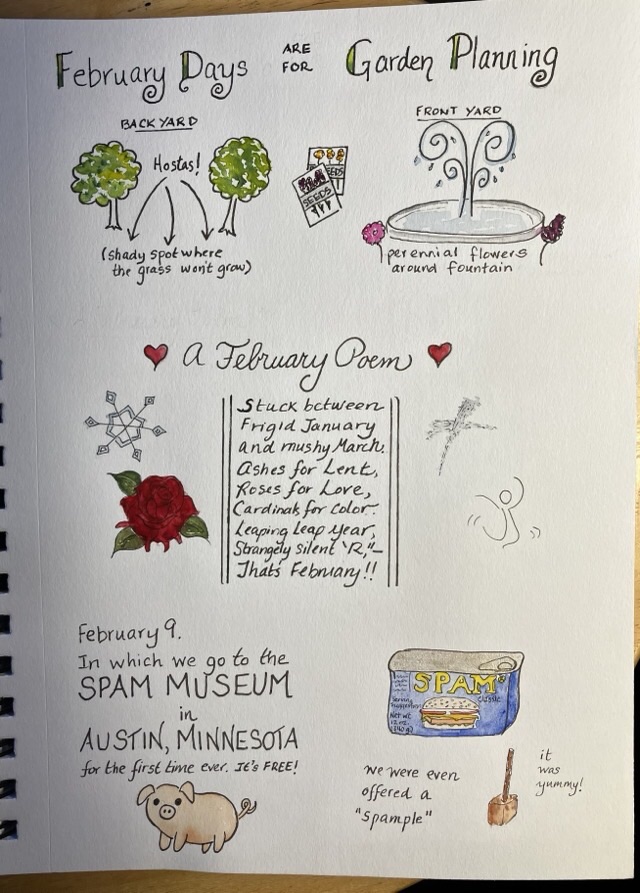 February Days ARE FOR Garden Planning
BACKYARD
Hostas!
(shady spot where
the grass won't grow)
SEEDS
SEEDS
FRONT YARD
perennial flowers
around fountain
A February Poem
Stuck between
Frigid January
and mushy March.
Ashes for Lent,
Roses for Love,
Cardinals for color.
Leaping Leap Year,
Strangely silent "R,"—
Thats February!!
February 9.
In which we go to the
SPAM MUSEUM
in
AUSTIN, MINNESOTA
for the first time ever. IT'S FREE!
SPAM
classic
Serving
suggestion
Net wt
12 oz.
(340g)
We were even
offered a
"spample"
it
was
yummy!